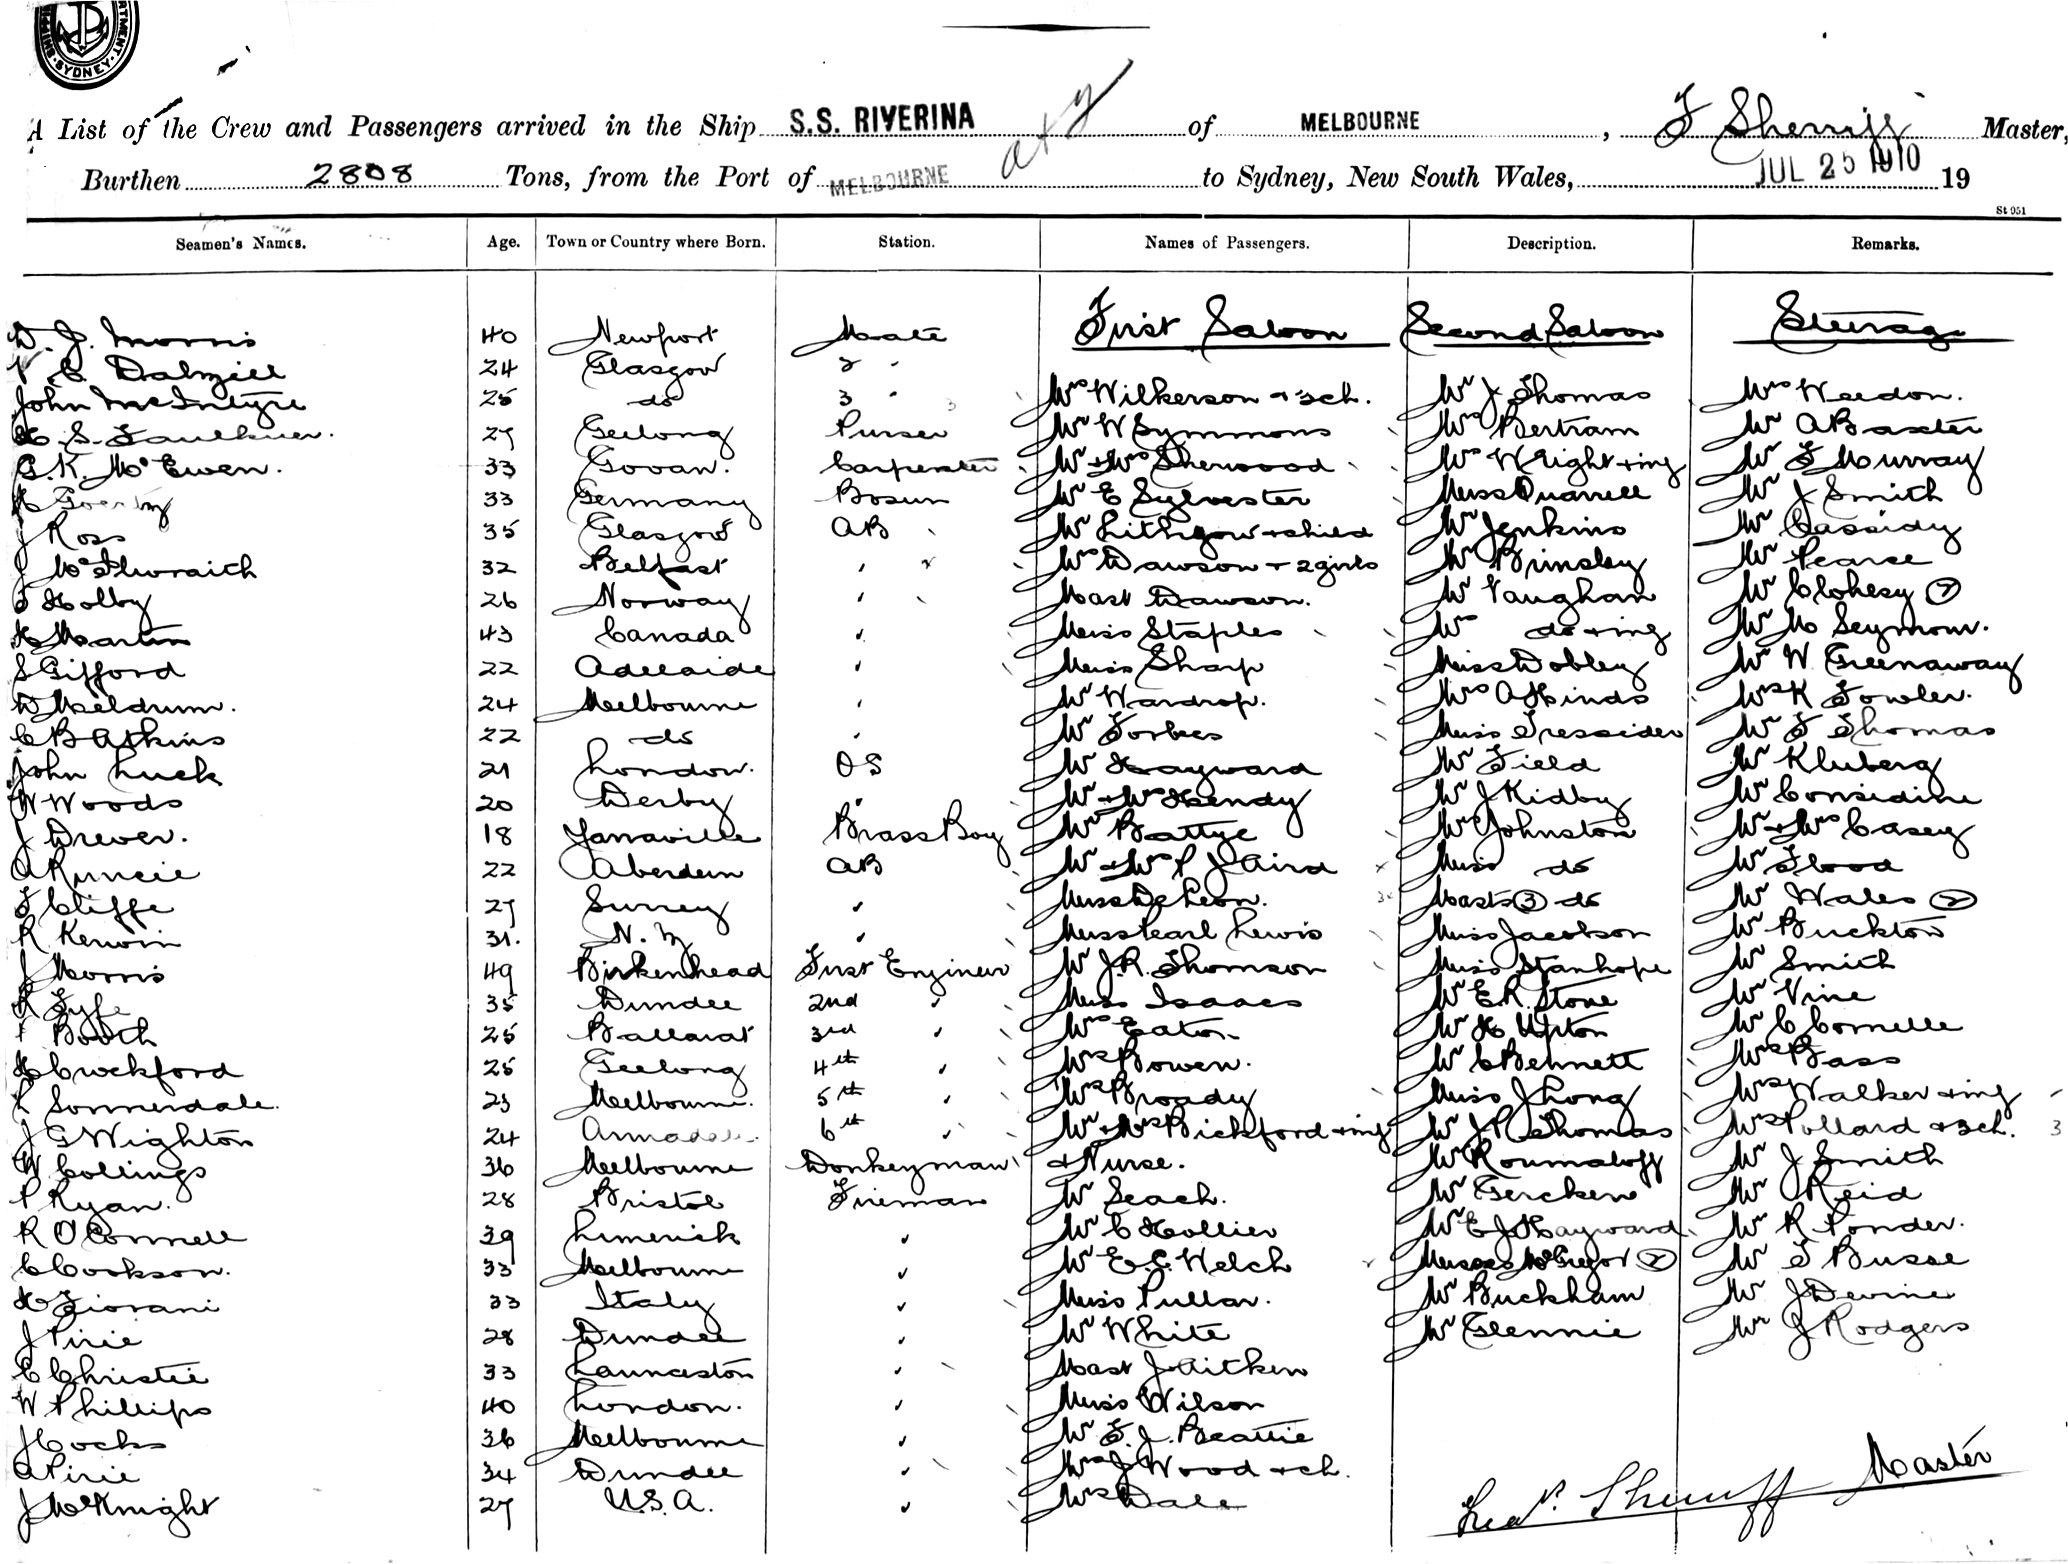 DEPARTMENT SHIPPING SYDNEY
A List of the Crew and Passengers arrived in the Ship S.S. RIVERINA of MELBOURNE, F Sherriff Master,
Burthen 2808 Tons, from the Port of MELBOURNE to Sydney, New South Wales, JUL 25 1910 19
St 951
Seamen's Names. Age. Town or Country where Born. Station. Names of Passengers. Description. Remarks.
D. J. Morris 40 Newport Mate First Saloon Second Saloon Steerage
Dalziell 24 Glasgow 2 "
John McIntyre 25 do 3 " Mrs Wilkerson + 3 ch. Mr J Thomas Mrs Weedon.
H. S. Faulkner. 29 Geelong Purser Mr W Symmons Mrs Bertram Mr A Baxter
G. K. McEwen. 33 Govan. Carpenter Mr + Mrs Sherwood Mrs Wright + inf Mr F Murray
33 Germany Bosun Mr E Sylvester Miss Quarrell Mr J Smith
J Ross 35 Glasgow AB Mr Lithgow + child Mr Jenkins Mr Cassidy
J McIlwraith 32 Belfast " Mrs Dawson + 2 girls Mr Brinsley Mr Pearse
Holby 26 Norway " Mast Dawson. Mr Vaughan Mr Clohesy (2)
H Martin 43 Canada " Miss Staples Mrs do + inf Mr M Seymour.
S Gifford 22 Adelaide " Miss Sharp Miss Dobley Mr W Greenaway
D Meldrum. 24 Melbourne " Mr Wardrop. Mrs A Hinds Mrs K Fowler.
C B Atkins 22 do " Mr Forbes Miss Tressider Mr F Thomas
John Luck 21 London. OS Mr Hayward Mr Field Mr Kluberg
W Woods 20 Derby " Mr + Mrs Hendy Mr J Kidby Mr Considine
J Drewer. 18 Yarraville Brass Boy Mrs Battye Mrs Johnston Mr + Mrs Casey
A Runcie 22 Aberdeen AB Mr + Mrs P J Aird Miss do Mr Flood
F Cliffe 29 Surrey " Miss De Leon. Masts (3) do Mr Wales (2)
R Kerwin 31. N.Z " Miss Pearl Lewis Miss Jacobson Mr Buckton
J Morris 49 Birkenhead First Engineer Mr J.R. Thomson Miss Stanhope Mr Smith
R Fyfe 35 Dundee 2nd " Miss Isaacs Mr E.R. Stone Mr Vine
Booth 25 Ballarat 3rd " Mrs Eaton Mr H Upton Mr C Cornelle
H Cuckford 25 Geelong 4th " Mrs Bowen. Mr C Bennett Mrs Bass
Sonnerdale. 23 Melbourne. 5th " Mrs Broady Miss J Long Mrs Walker + inf
J G Wighton 24 Armadale. 6th " Mr + Mrs Bickford + inf Mr J P Thomas Mrs Pollard + 3 ch. 3
W Collings 36 Melbourne Donkeyman + Nurse. Mr Roumatoff Mr J Smith
P Ryan. 28 Bristol Fireman Mr Seach. Mr Gercken Mr Reid
R O'Connell 39 Limerick " Mr C Hollier Mr E J Hayward Mr R Ponder.
C Cookson. 33 Melbourne " Mr E. C. Welch Misses McGregor (2) Mr T Busse
H Giovani 33 Italy " Miss Pullar. Mr Buckham Mr J Devine
J Pirie 28 Dundee " Mr White Mr Glennie Mr J Rodgers
C Christie 33 Launceston " Mast J Aitken
W Phillips 40 London. " Miss Wilson
J Cocks 36 Melbourne " Mr F. J. Beattie
A Pirie 34 Dundee " Mrs J Wood + ch.
J McKnight 29 U.S.A. " Mrs Dale
Sherriff Master